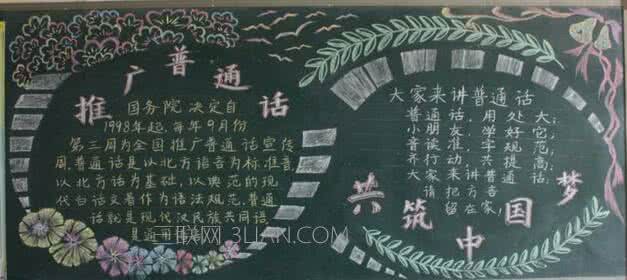 推广普通话
国务院决定自
1998年起,每年9月份
第三周为全国推广普通话宣传
周,普通话是以北方语音为标准音
以北方话为基础,以典范的现
代白话文著作为语法规范.普通
话就是现代汉民族共同语
是通用
大家来讲普通话
普通话,用处大;
小朋友,学好它,
音读准,字规范,
齐行动,共提高;
大家来讲普通话,
请把方言
留在家,
共筑中国梦
联网 3LIAN.COM